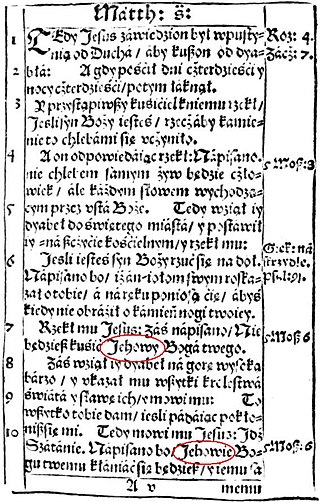 Matth:
1 TEdy Jesus záwiedzion był wpusty- Roz: 4.
nią od Duchá / áby kuszon od dya- Zácż: 7.
2 błá: A gdy pościł dni cżterdzieści y
nocy cżterdzieści / potym łáknął.
3 Y przystąpiwszy kusiciel kniemu rzekł /
Jesli syn Boży iesteś / rzecż áby kámie-
nie to chlebámi się vcżyniło.
4 A on odpowiedáiąc rzekł: Nápisano.
nie chlebem sámym żyw będzie cżło- 5 Moś: 8
wiek / ále káżdym słowem wychodzą-
5 cym przez vstá Boże. Tedy wziął iy
dyabeł do świętego miástá / y postáwił
iy ná szcżycie kościelnym / y rzekł mu:
6 Jesli iesteś syn Boży rzuć się ná doł.
Nápisano bo / iż án-iołom swym roská-
zał o tobie / á ná ręku poniosą cię / ábyś
kiedy nie obráził o kámień nogi twoiey.
7 Rzekł mu Jesus: Záś nápisano / Nie
będziesz kusić Jehowy Bogá twego. 5 Moś 6
8 Záś wziął iy dyabeł ná gorę wysoką
bárzo / y vkazał mu wszytki krolestwá
9 świátá y sławę ich / y mowi mu: To
wszytko tobie dam / iesli pádáiąc pokło-
10 nisz się mi. Tedy mowi mu Jesus: Jdź
Szátánie. Nápisano bo / Jehowie Bo- 5 Moś: 6
gu twemu kłániáć się będziesz / y temu sá
A v memu